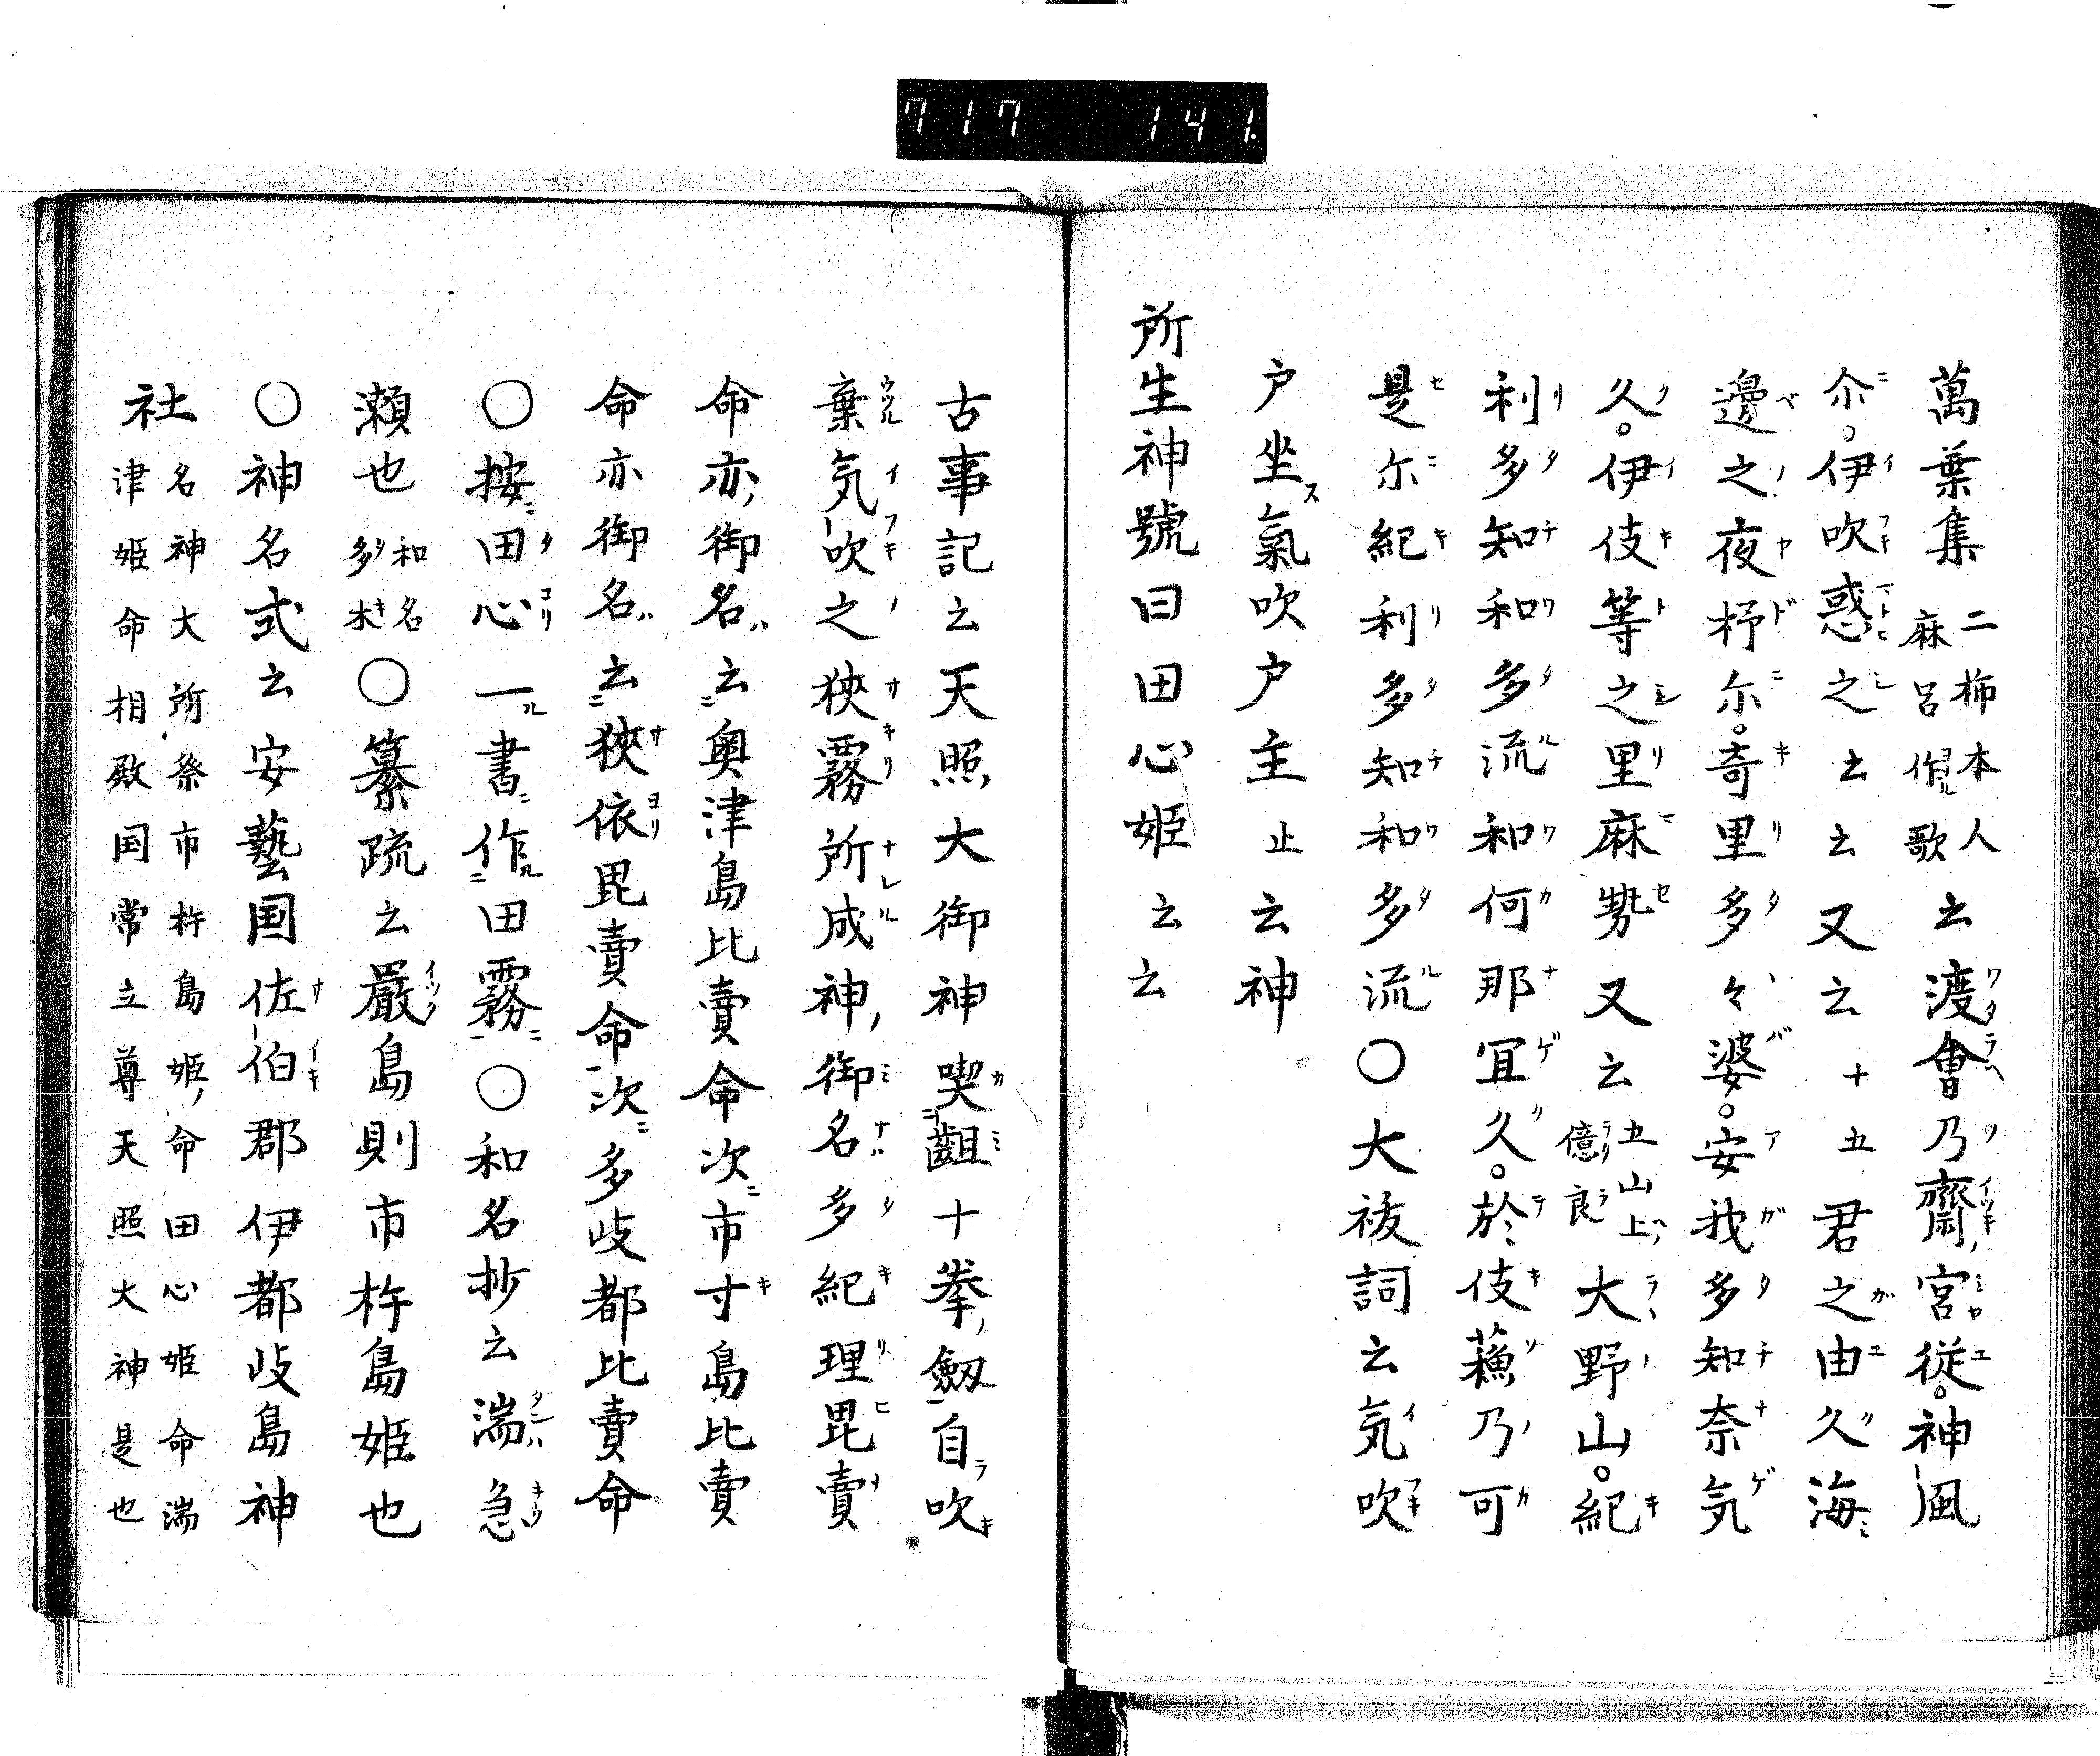 717 141.
萬葉集二柿本人麻呂作ル歌云渡會乃齋宮従。神風
尒。伊吹惑之云云又云十五君之由久海
邊之夜杼尓。奇里多々婆。安我多知奈気
久。伊伎等之里麻勢又云五山上億良大野山。紀
利多知和多流和何那宜久。於伎蘓乃可
是尓紀利多知和多流〇大祓詞云気吹
戸坐氣吹戸主止云神
所生神號曰田心姫云云
古事記云天照大御神喫齟十拳劔自吹
棄気吹之狹霧所成神御名多紀理毘賣
命亦御名云奥津島比賣命次市寸島比賣
命亦御名云狹依毘賣命次多岐都比賣命
〇按田心一書作田霧〇和名抄云湍急
瀬也和名多木〇纂疏云嚴島則市杵島姫也
〇神名式云安藝国佐伯郡伊都岐島神
社名神大所祭市杵島姫命田心姫命湍津姫命相殿国常立尊天照大神是也